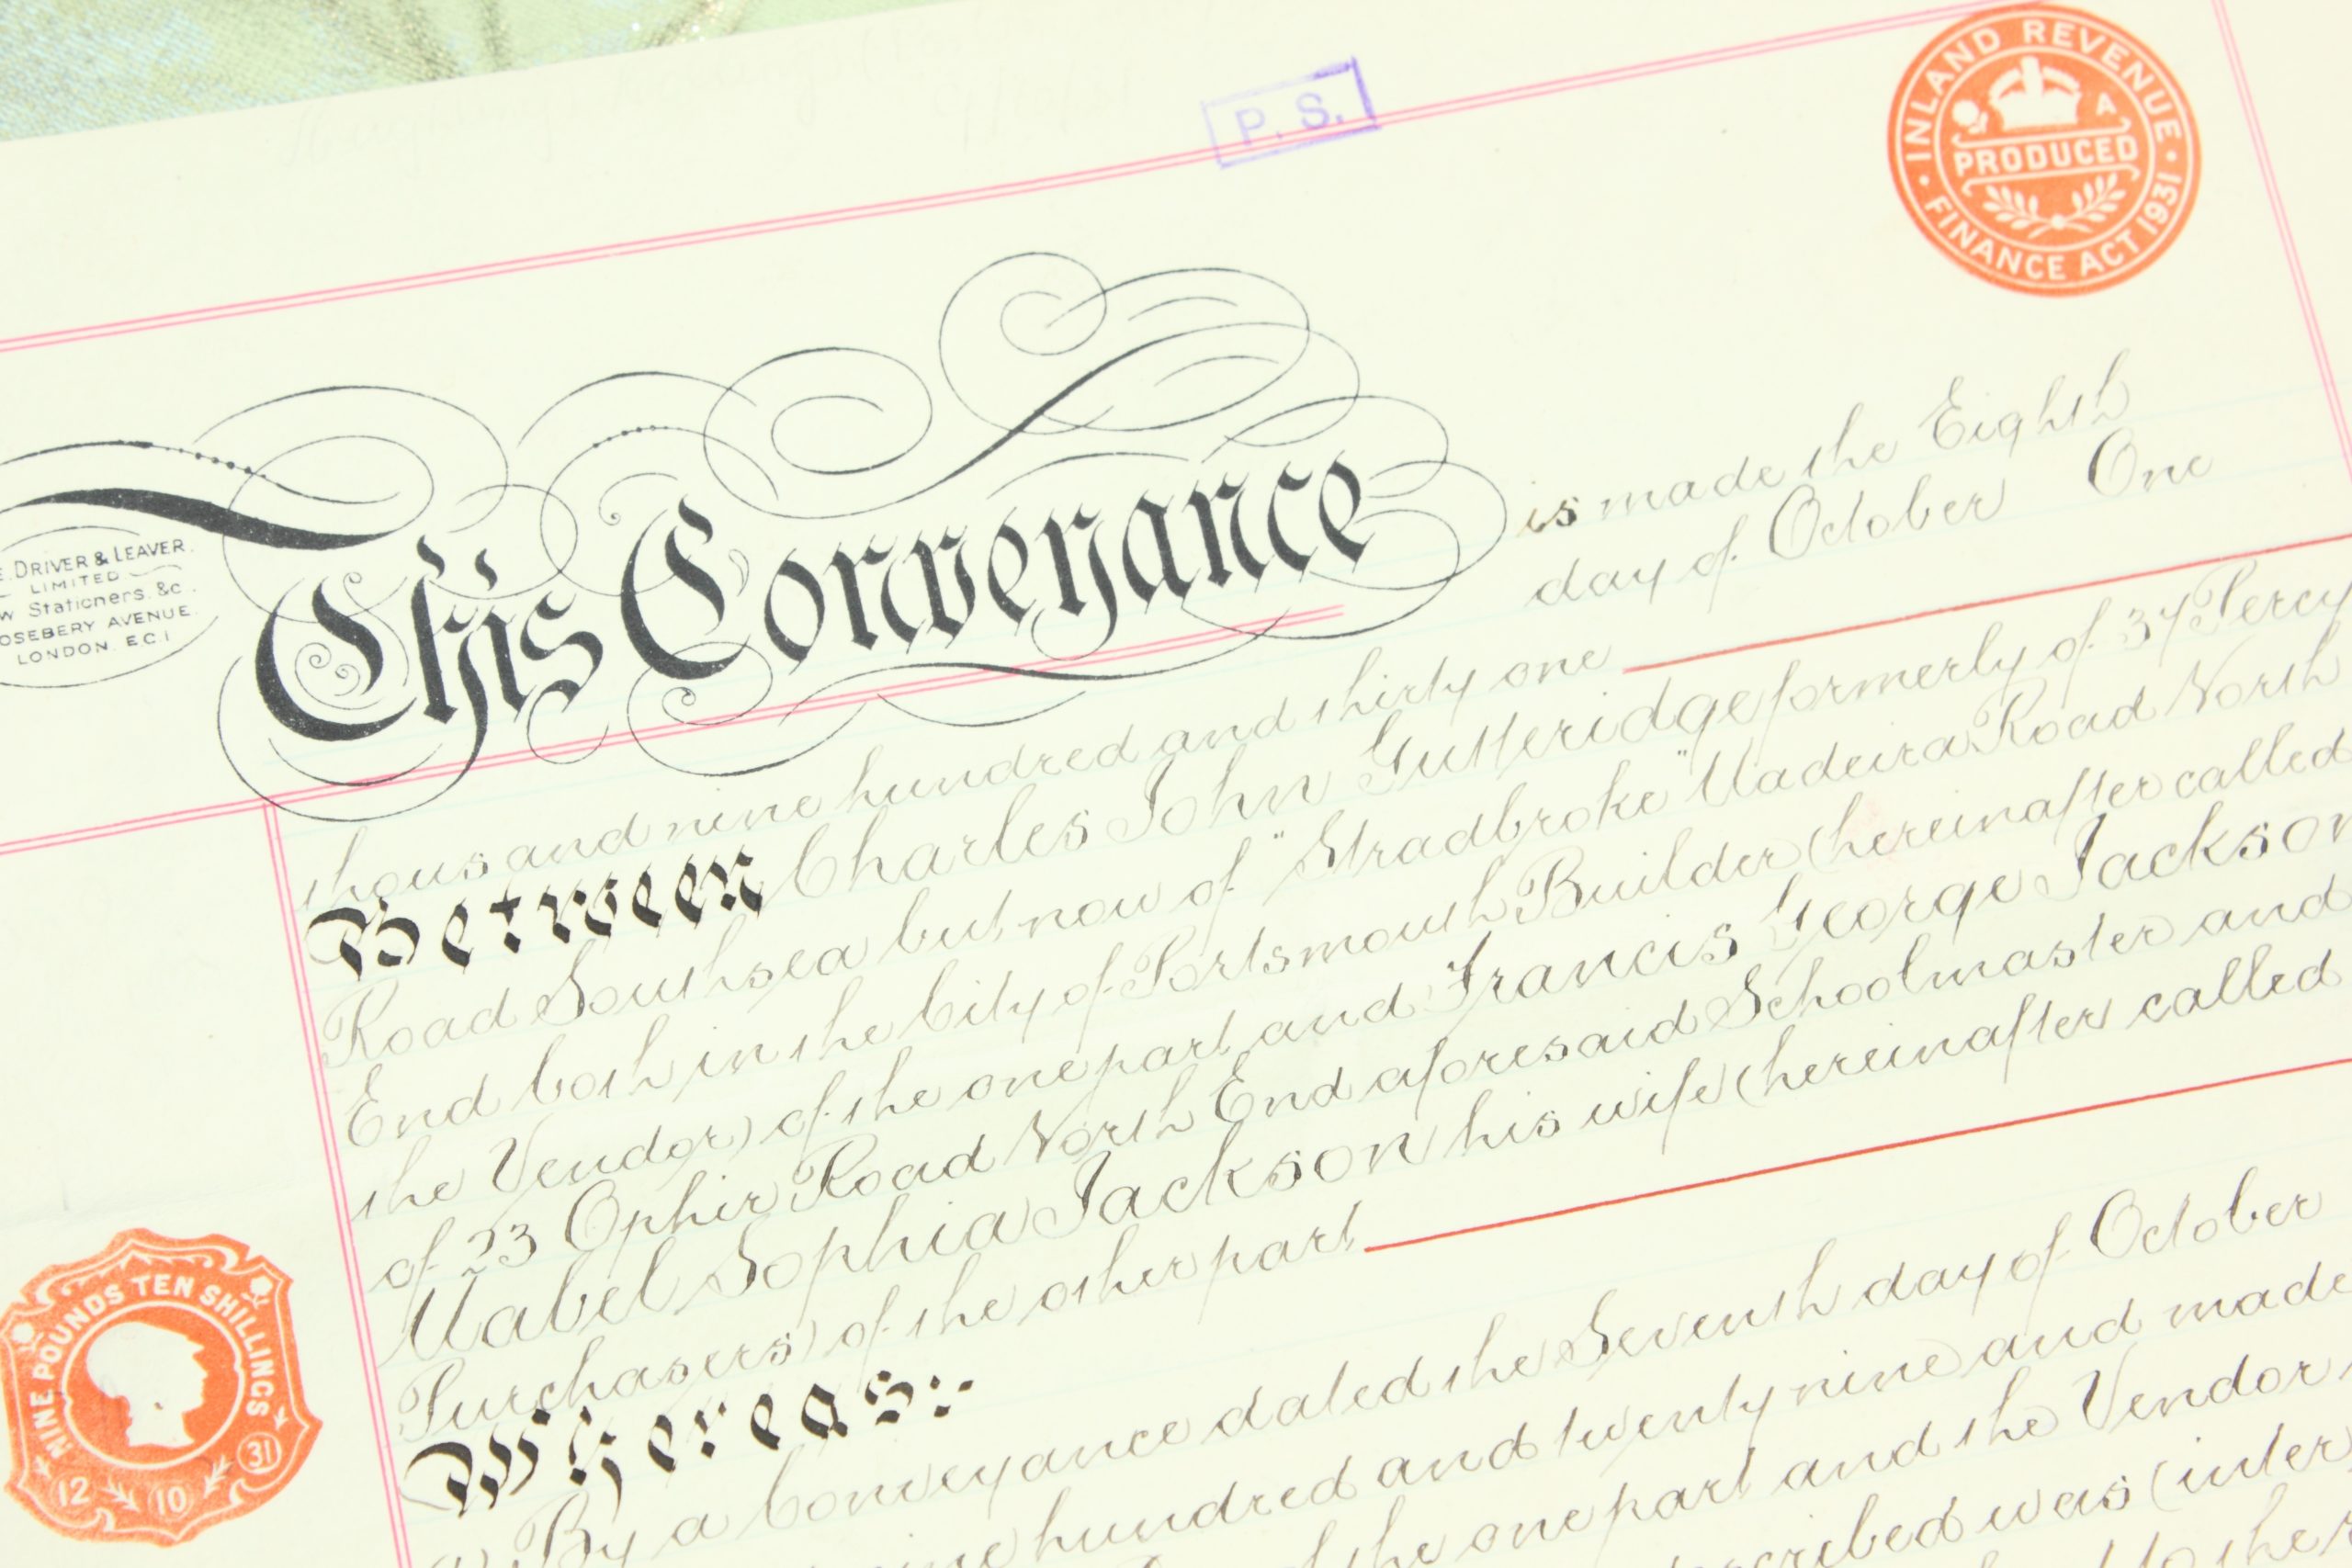 P. S.
INLAND REVENUE
A
PRODUCED
FINANCE ACT 1931
This Conveyance
is made the Eighth
day of October One
E. DRIVER & LEAVER.
LIMITED
w Stationers. &c.
OSEBERY AVENUE.
LONDON. E.C.1
thousand nine hundred and thirty one
Between Charles John Gutteridge formerly of 37 Percy
Road Southsea but now of "Stradbroke" Madeira Road North
End both in the City of Portsmouth Builder (hereinafter called
the Vendor) of the one part and Francis George Jackson
of 23 Ophir Road North End aforesaid Schoolmaster and
Mabel Sophia Jackson his wife (hereinafter called
Purchasers) of the other part
Whereas:-
By a Conveyance dated the Seventh day of October
nine hundred and twenty nine and made
the one part and the Vendor
was (inter
NINE POUNDS TEN SHILLINGS
12 10 31